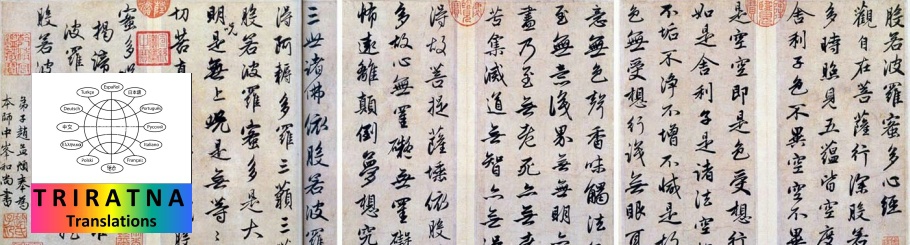 般若波羅蜜多心經
觀自在菩薩行深般若
多時照見五蘊皆空度
舍利子色不異空空不
是空即是色受想行
如是舍利子是諸法空
不垢不淨不增不減是故
色無受想行識無眼耳
意無色聲香味觸法
至無意識界無無明
盡乃至無老死亦無
苦集滅道無智亦無
得故菩提薩埵依般
多故心無罣礙無罣礙
怖遠離顛倒夢想究
三世諸佛依般若波羅
得阿耨多羅三藐三
般若波羅蜜多是大
明呪是無上呪是無等
切苦真
蜜多
揭諦
波羅
般若波
弟子趙孟頫奉為
本師中峯和尚書
Español
Türkçe
日本語
Deutsch
Português
中文
Русский
Ελληνικά
Italiano
Polski
Français
TRIRATNA
Translations